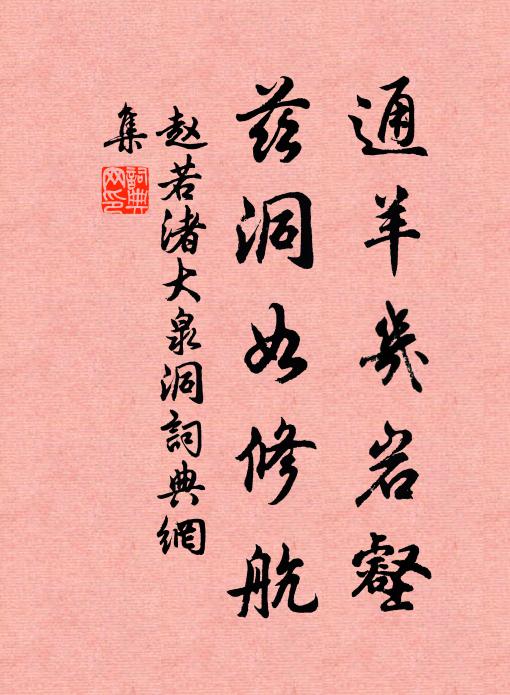 通羊幾岩壑
茲洞如修航
赵若渚大泉洞詞典網
集
詞典
网印